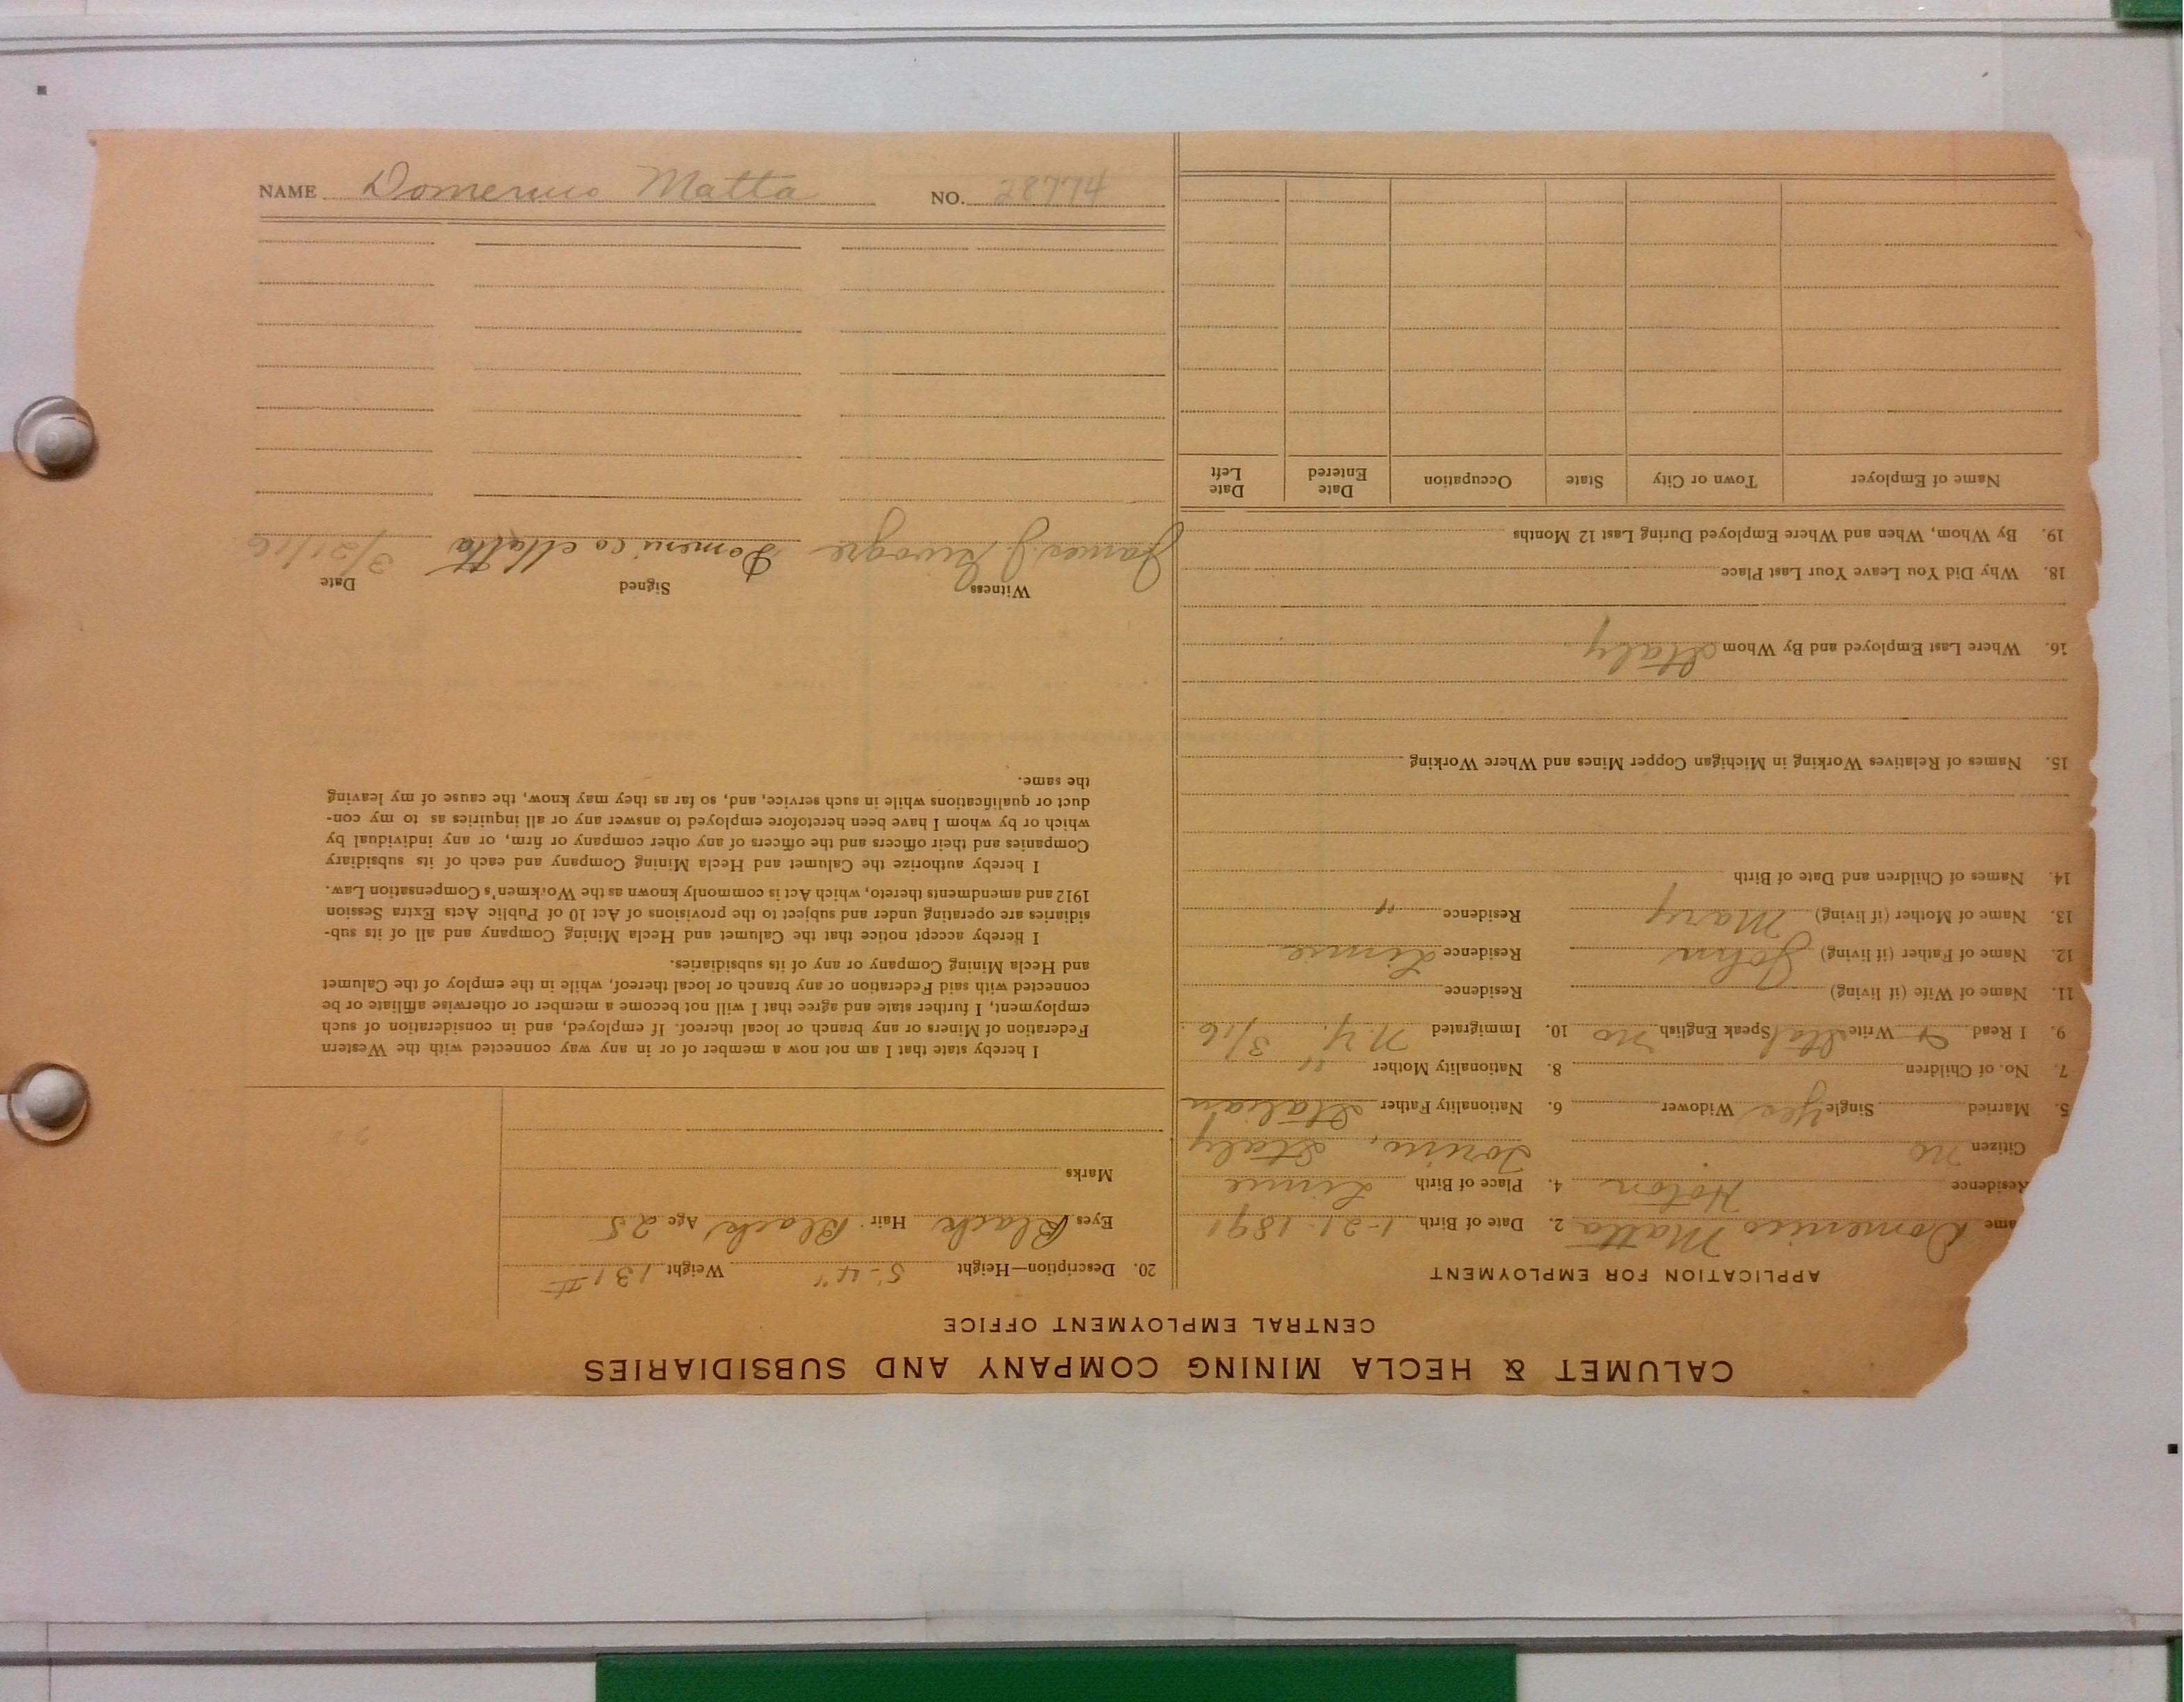 CALUMET & HECLA MINING COMPANY AND SUBSIDIARIES
CENTRAL EMPLOYMENT OFFICE
APPLICATION FOR EMPLOYMENT
ame Domenico Matta 2. Date of Birth 1-21-1891
Residence Hoton 4. Place of Birth
Citizen no Torino, Italy
5. Married Single Yes Widower 6. Nationality Father Italian
7. No. of Children 8. Nationality Mother "
9. I Read & Write Ital Speak English no 10. Immigrated N.Y. 3/16
11. Name of Wife (if living) Residence
12. Name of Father (if living) John Residence
13. Name of Mother (if living) Mary Residence "
14. Names of Children and Date of Birth
15. Names of Relatives Working in Michigan Copper Mines and Where Working
16. Where Last Employed and By Whom Italy
18. Why Did You Leave Your Last Place
19. By Whom, When and Where Employed During Last 12 Months
Name of Employer Town or City State Occupation Date Entered Date Left
20. Description—Height 5'-4" Weight 131 #
Eyes Black Hair Black Age 25
Marks
I hereby state that I am not now a member of or in any way connected with the Western
Federation of Miners or any branch or local thereof. If employed, and in consideration of such
employment, I further state and agree that I will not become a member or otherwise affiliate or be
connected with said Federation or any branch or local thereof, while in the employ of the Calumet
and Hecla Mining Company or any of its subsidiaries.
I hereby accept notice that the Calumet and Hecla Mining Company and all of its sub-
sidiaries are operating under and subject to the provisions of Act 10 of Public Acts Extra Session
1912 and amendments thereto, which Act is commonly known as the Workmen's Compensation Law.
I hereby authorize the Calumet and Hecla Mining Company and each of its subsidiary
Companies and their officers and the officers of any other company or firm, or any individual by
which or by whom I have been heretofore employed to answer any or all inquiries as to my con-
duct or qualifications while in such service, and, so far as they may know, the cause of my leaving
the same.
Witness Signed Date
James J. Domenico Matta 3/21/16
NAME Domenico Matta NO. 28774